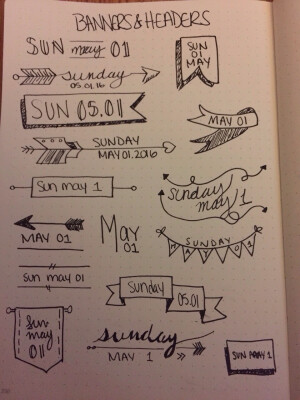 BANNERS & HEADERS
SUN may 01
SUN
01
MAY
sunday
05.01.16
SUN 05.01
MAY 01
SUNDAY
MAY 01. 2016
Sun may 1
sunday
may 1
MAY 01
May
01
SUNDAY
MAY 01
sun may 01
Sunday 05.01
Sun
may
01
sunday
MAY 1
SUN MAY 1